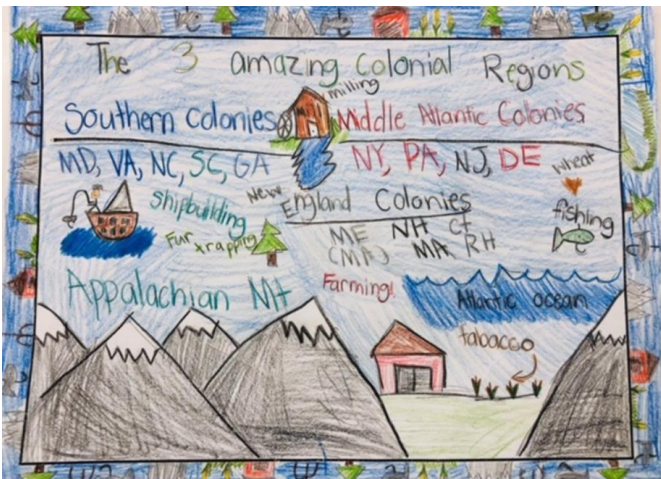 The 3 amazing Colonial Regions
milling
Southern Colonies
Middle Atlantic Colonies
MD, VA, NC, SC, GA
NY, PA, NJ, DE
wheat
shipbuilding
New England Colonies
fishing
Fur trapping
ME NH Ct
(MA) MA RH
Appalachian Mt
Farming!
Atlantic ocean
tabacco